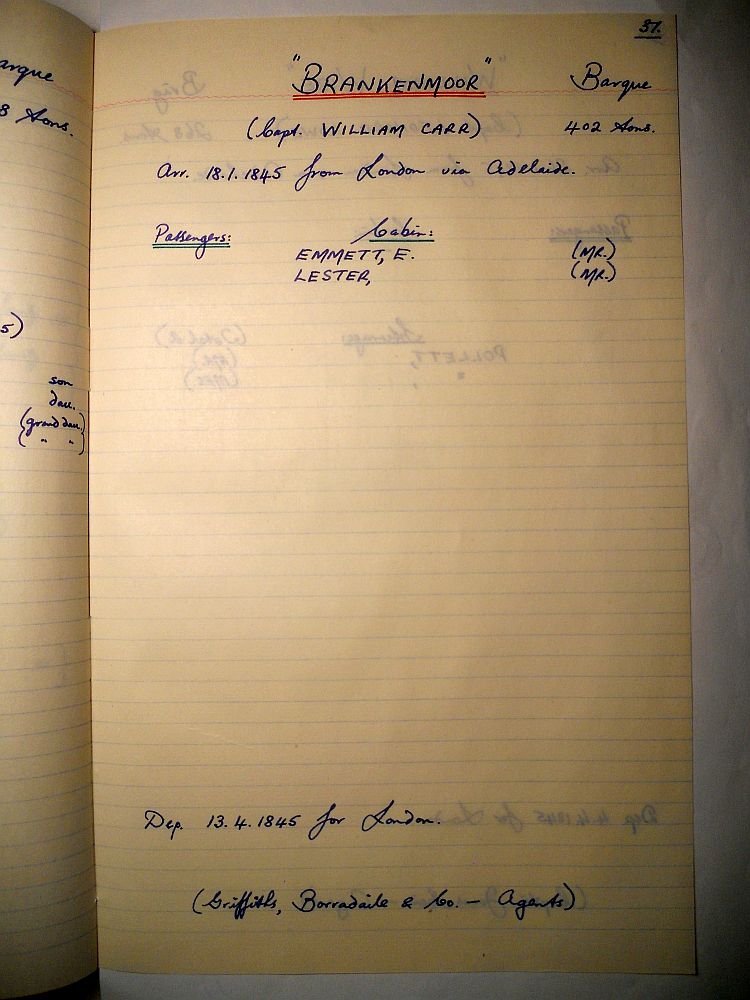 arque
8 tons.
5)
son
dau.
(grand dau.)
( " " )
37.
"BRANKENMOOR" Barque
(Capt. WILLIAM CARR) 402 tons.
Arr. 18.1.1845 from London via Adelaide.
Passengers: Cabin:
EMMETT, E. (MR.)
LESTER, (MR.)
Dep. 13.4.1845 for London.
(Griffiths, Borradaile & Co. - Agents)